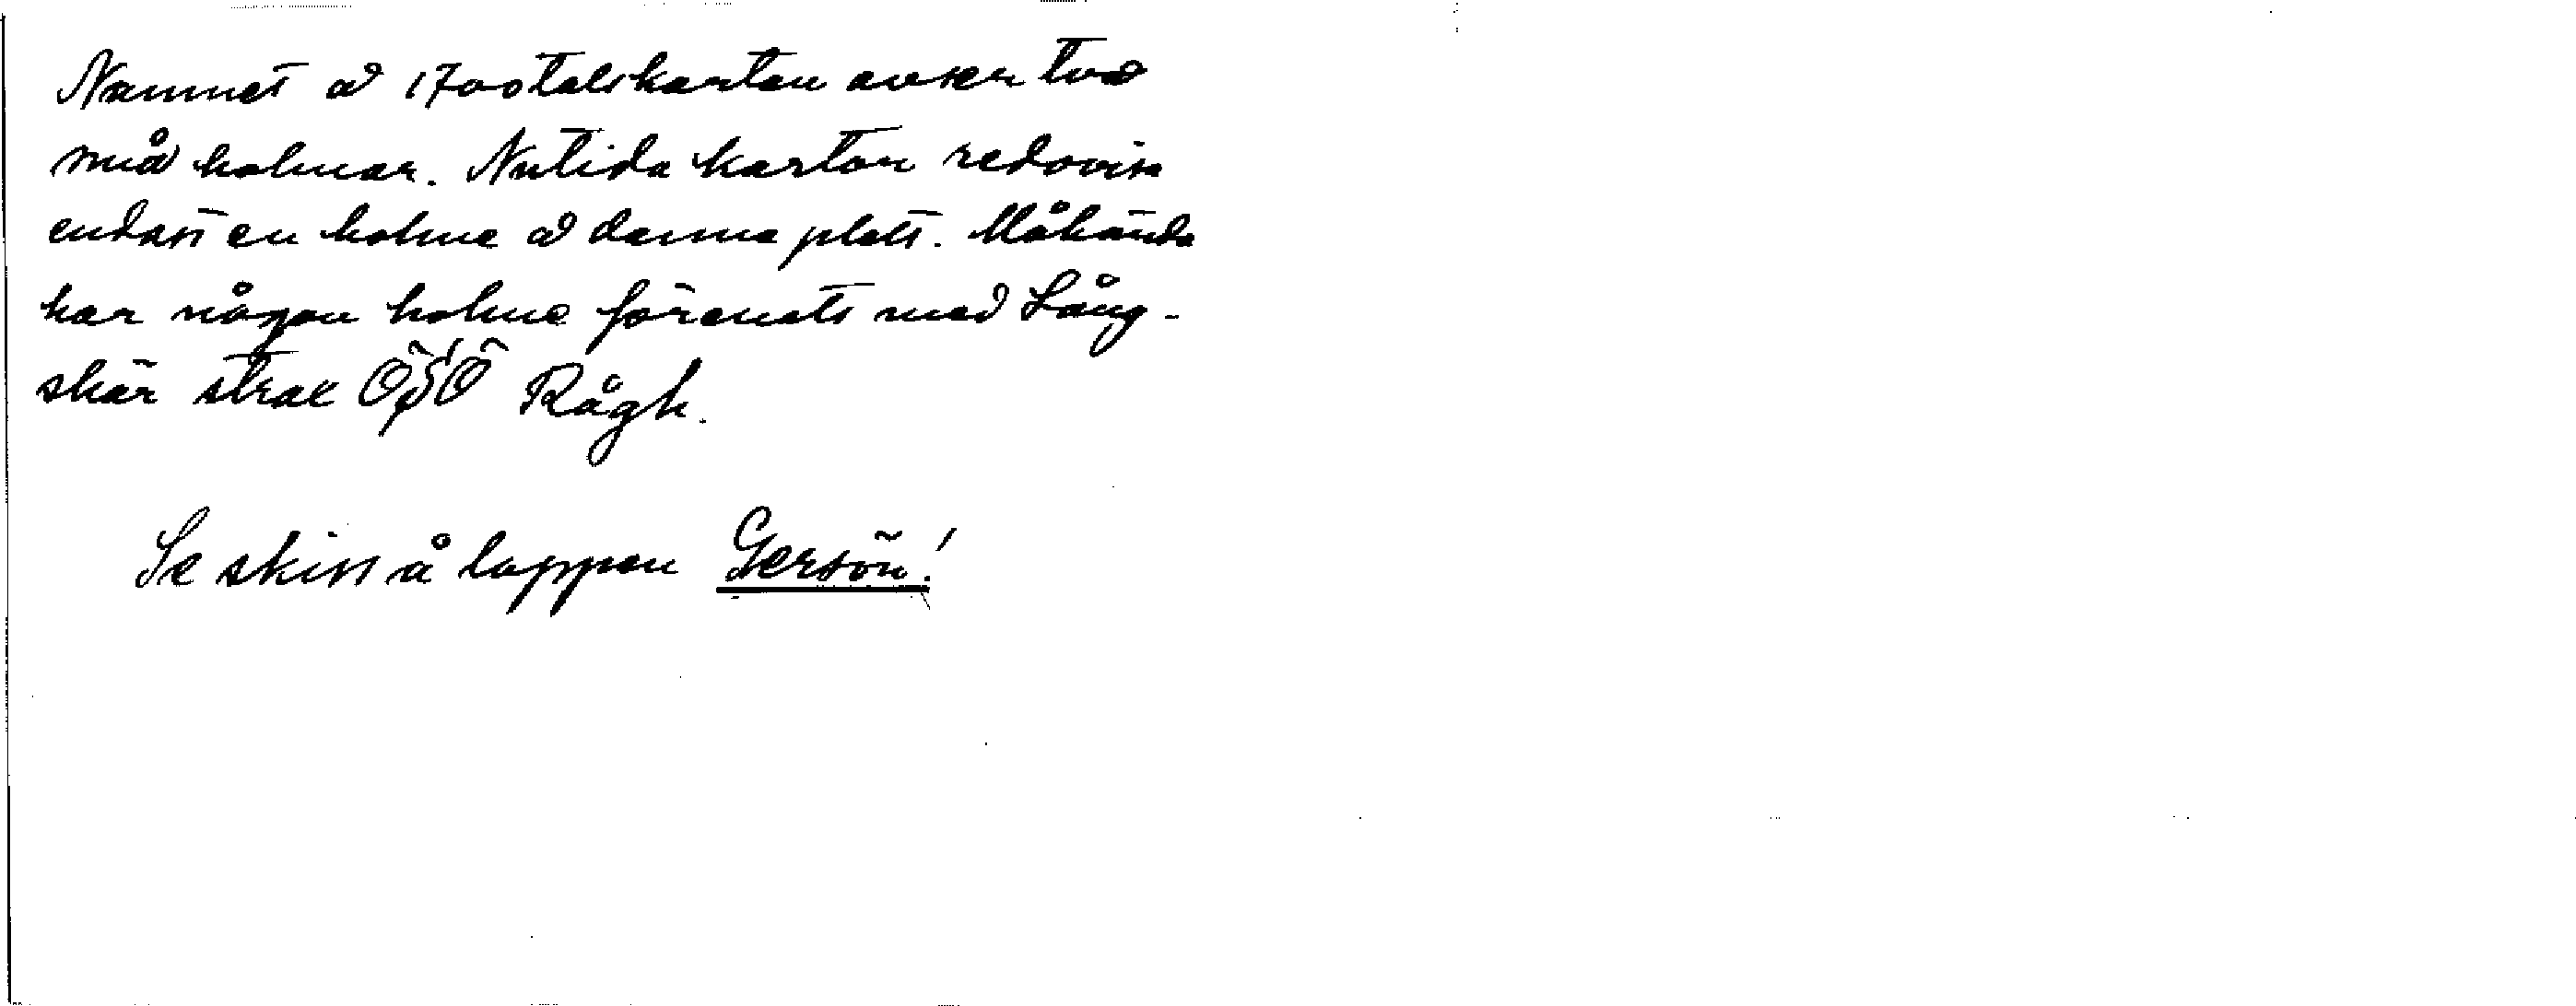 Namnet å 1700talskartan avser två
små holmar. Nutida kartor redovisa
endast en holme å denna plats. Måhända
har någon holme förenats med Lång-
skär strax ÖSÖ Rågh.
Se skiss å lappen Gersön!